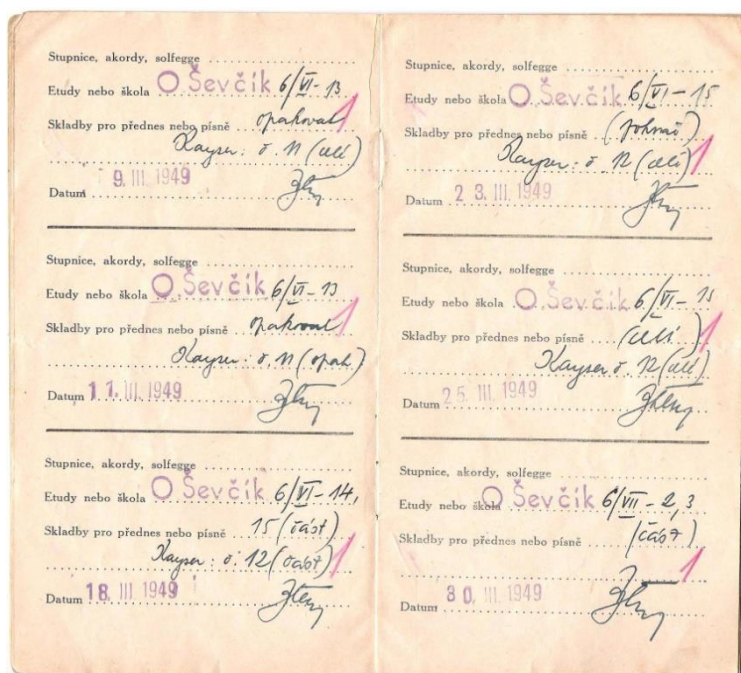 Stupnice, akordy, solfegge
Etudy nebo škola O Ševčík 6/VI-13
Skladby pro přednes nebo písně opakovat 1
Kayser: č. 11 (celé)
Datum 9. III. 1949
Stupnice, akordy, solfegge
Etudy nebo škola O Ševčík 6/VI-13
Skladby pro přednes nebo písně opakovat 1
Kayser: č. 11 (opak)
Datum 11. III. 1949
Stupnice, akordy, solfegge
Etudy nebo škola O Ševčík 6/VI-14,
Skladby pro přednes nebo písně 15 (část)
Kayser: č. 12 (část) 1
Datum 18. III. 1949
Stupnice, akordy, solfegge
Etudy nebo škola O Ševčík 6/VI-15
Skladby pro přednes nebo písně
Kayser: č. 12 (celé) 1
Datum 23. III. 1949
Stupnice, akordy, solfegge
Etudy nebo škola O Ševčík 6/VI-15
Skladby pro přednes nebo písně (celé) 1
Kayser č. 12 (celé)
Datum 25. III. 1949
Stupnice, akordy, solfegge
Etudy nebo škola O Ševčík 6/VII-2,3
Skladby pro přednes nebo písně (část)
1
Datum 30. III. 1949